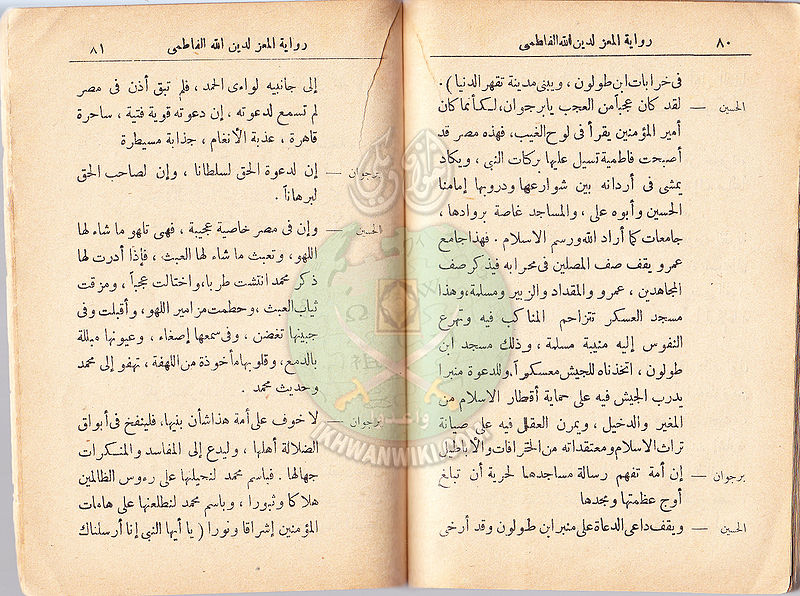 ٨٠ رواية المعز لدين الله الفاطمى
فى خرابات ابن طولون ، ويبنى مدينة تقهر الدنيا ) .
الحسين — لقد كان عجيباً من العجب يا برجوان، لكأنما كان
أمير المؤمنين يقرأ فى لوح الغيب، فهذه مصر قد
أصبحت فاطمية تسيل عليها بركات النبى ، ويكاد
يمشى فى أردانه بين شوارعها ودروبها إمامنا
الحسين وأبوه على ، والمساجد غاصة بروادها ،
جامعات كما أراد الله ورسم الاسلام . فهذا جامع
عمرو يقف صف المصلين فى محرابه فيذكر صف
المجاهدين ، عمرو والمقداد والزبير ومسلمة، وهذا
مسجد العسكر تتزاحم المناكب فيه وتهرع
النفوس إليه منيبة مسلمة ، وذلك مسجد ابن
طولون ، اتخذناه للجيش معسكراً وللدعوة منبرا
يدرب الجيش فيه على حماية أقطار الاسلام من
المغير والدخيل ، ويمرن العقل فيه على صيانة
تراث الاسلام ومعتقداته من الخرافات والأباطيل
برجوان — إن أمة تفهم رسالة مساجدها لحرية أن تبلغ
أوج عظمتها ومجدها
الحسين — ويقف داعى الدعاة على منبر ابن طولون وقد أرخى
رواية المعز لدين الله الفاطمى ٨١
إلى جانبيه لواءى الحمد ، فلم تبق أذن فى مصر
لم تسمع لدعوته ، إن دعوته قوية فتية ، ساحرة
قاهرة ، عذبة الأنغام ، جذابة مسيطرة
برجوان — إن لدعوة الحق لسلطانا ، وإن لصاحب الحق
لبرهاناً .
الحسين — وإن فى مصر خاصية عجيبة ، فهى تلهو ما شاء لها
اللهو، وتعبث ما شاء لها العبث ، فإذا أدرت لها
ذكر محمد انتشت طربا، واختالت عجباً ، ومزقت
ثياب العبث ، وحطمت مزامير اللهو، وأقبلت وفى
جبينها تغضن ، وفى سمعها إصغاء ، وعيونها مبللة
بالدمع، وقلوبها مأخوذة من اللهفة ، تهفو إلى محمد
وحديث محمد .
برجوان — لا خوف على أمة هذا شأن بنيها، فلينفخ فى أبواق
الضلالة أهلها ، وليدع إلى المفاسد والمنكرات
جهالها . فباسم محمد لنحيلنها على رءوس الظالمين
هلاكا وثبورا ، وباسم محمد لنطلعنها على هامات
المؤمنين إشراقا ونورا ( يا أيها النبى إنا أرسلناك
وأعدوا
IKHWANWIKI.COM